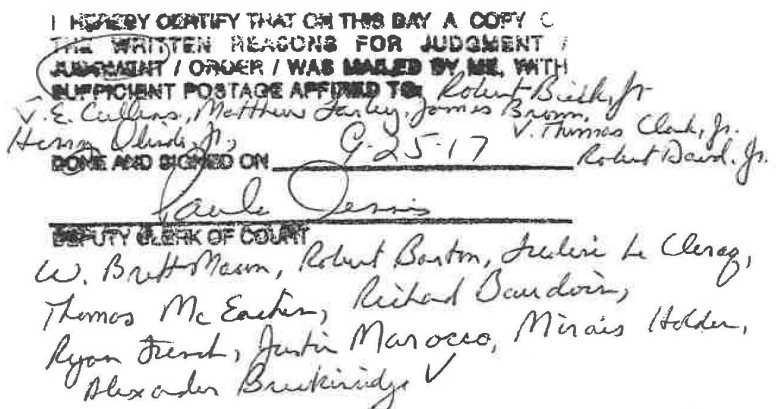 I HEREBY CERTIFY THAT ON THIS DAY A COPY O
THE WRITTEN REASONS FOR JUDGMENT /
JUDGMENT / ORDER / WAS MAILED BY ME, WITH
SUFFICIENT POSTAGE AFFIXED TO: Robert Bieck, Jr
V.E. Cullens, Matthew Farley, James Brown,
Henry Olinde, Jr, V. Thomas Clark, Jr.
DONE AND SIGNED ON 9-25-17 Robert David. Jr.
DEPUTY CLERK OF COURT
W. Brett Mason, Robert Barton, Frederic Le Clercq,
Thomas McEachin, Richard Baudoin,
Ryan French, Justin Marocco, Mirais Holden,
Alexander Breckinridge